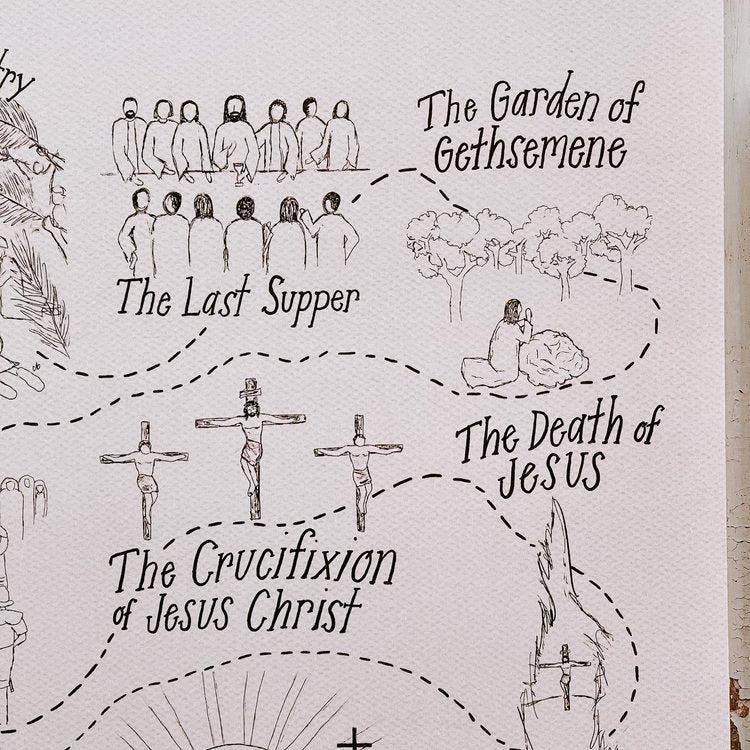 The Garden of
Gethsemene
The Last Supper
The Death of
Jesus
The Crucifixion
of Jesus Christ